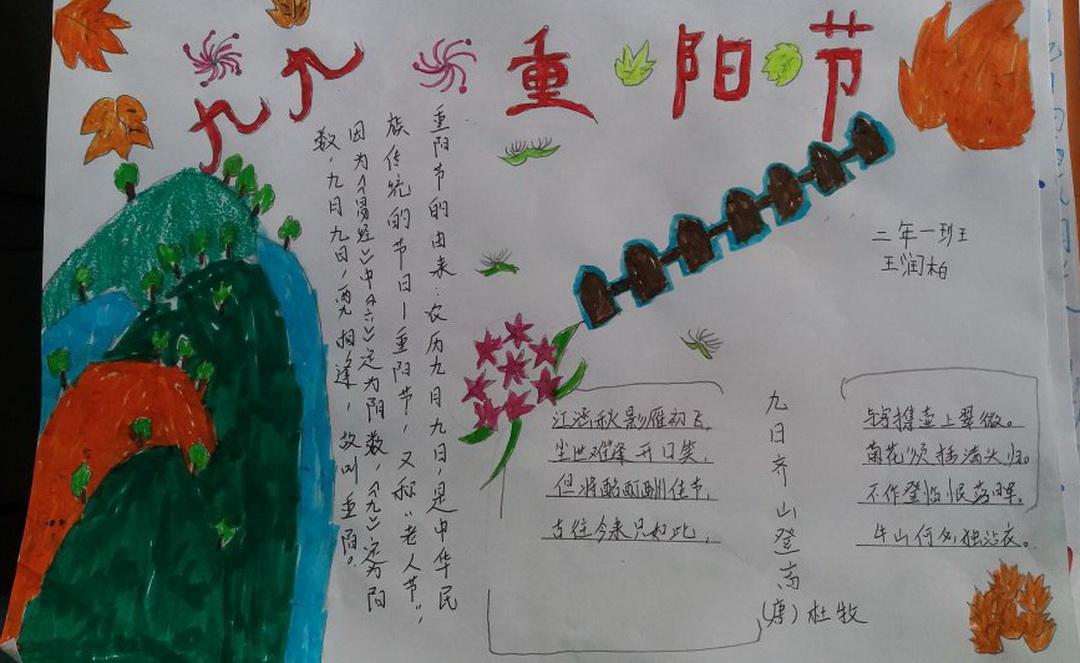 九九重阳节
重阳节的由来:农历九月九日,是中华民
族传统的节日—重阳节,又称"老人节",
因为《易经》中《六》定为阳数,《九》定为阳
数,九月九日,两九相逢,故叫重阳。
二年一班王
王润柏
九日齐山登高
(唐)杜牧
江涵秋影雁初飞,
与客携壶上翠微。
尘世难逢开口笑,
菊花须插满头归。
但将酩酊酬佳节,
不作登临恨落晖。
古往今来只如此,
牛山何必独沾衣。